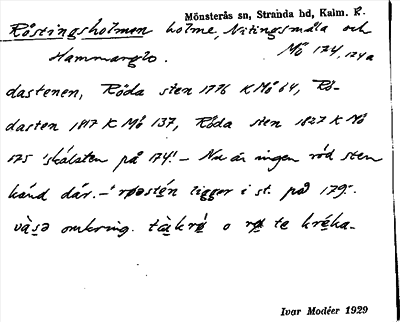 Mönsterås sn, Stranda hd, Kalm. l.
Röstingsholmen holme, Nötingsmåla och
Hammarglo. Mö 174, 174a
dastenen, Röda sten 1776 K Mö 64, Rö-
dasten 1817 K Mö 137, Röda sten 1827 K Mö
175 'skälsten på 174'. – Nu är ingen röd sten
känd där. – røɑstén ligger i st. på 179.
omkring. o te
Ivar Modéer 1929